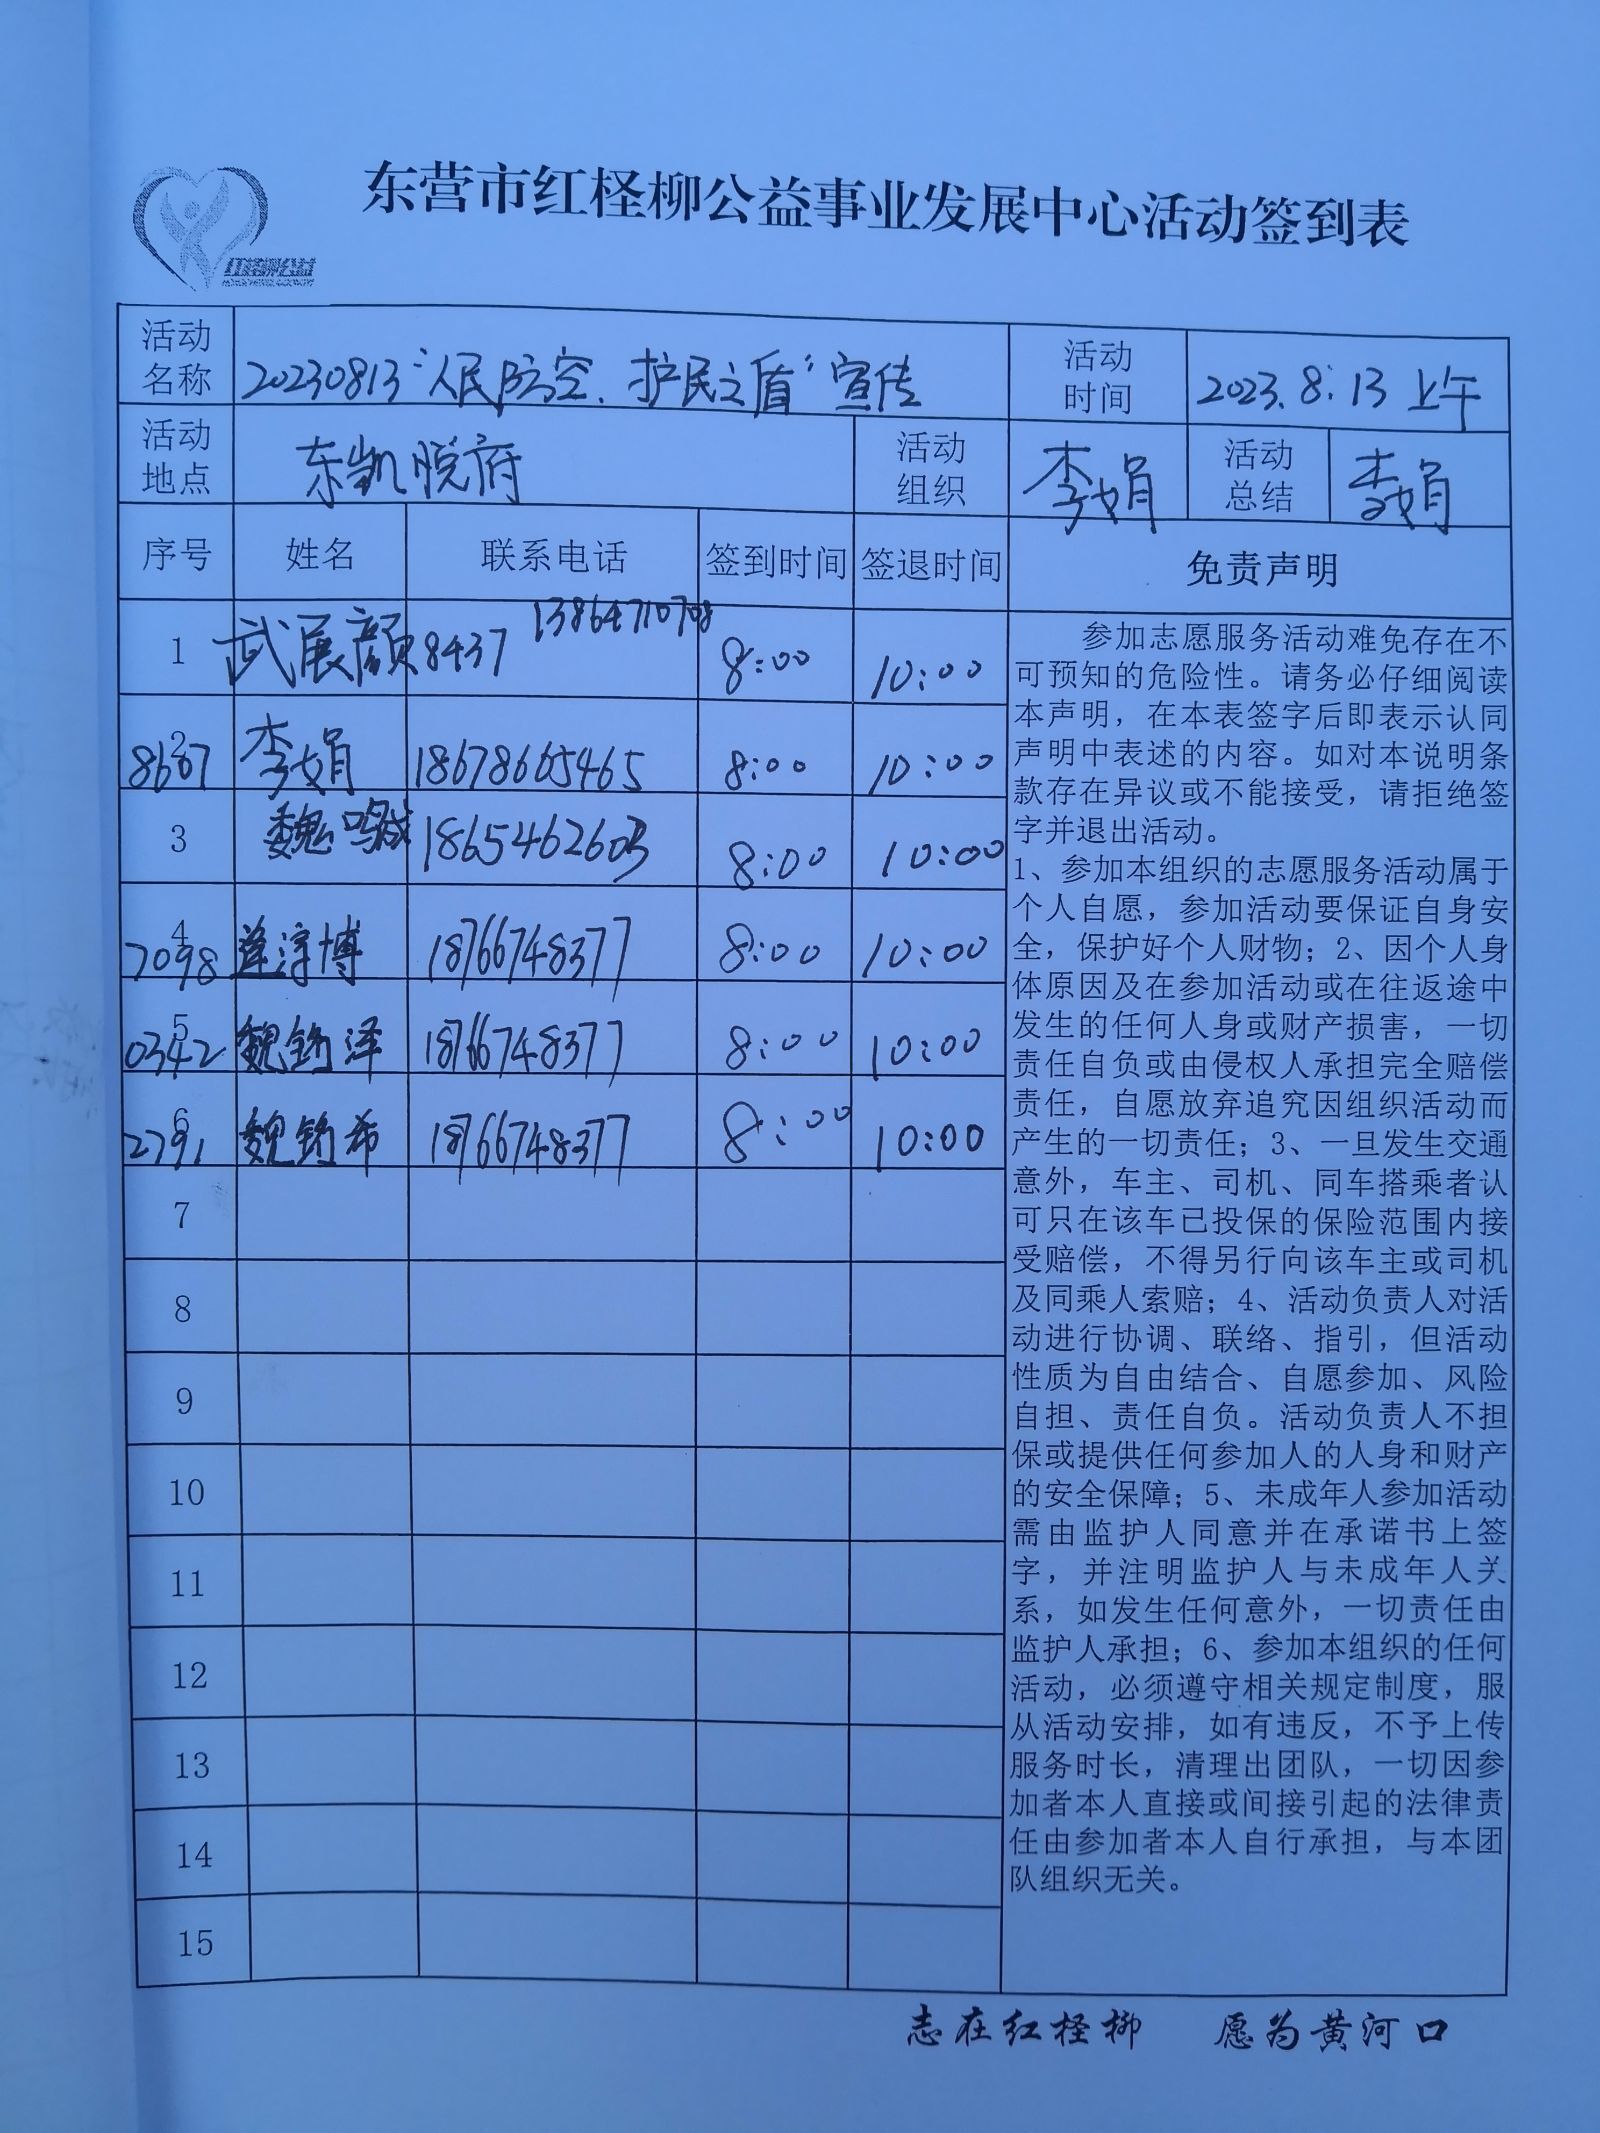 东营市红柽柳公益事业发展中心活动签到表
红柽柳公益
活动名称 20230813“人民防空、护民之盾”宣传 活动时间 2023.8.13 上午
活动地点 东凯悦府 活动组织 李娟 活动总结 李娟
序号 姓名 联系电话 签到时间 签退时间 免责声明
1 武展颜 8437 13864710708 8:00 10:00
2 8667 李娟 18678665465 8:00 10:00
3 魏鸣 1865462603 8:00 10:00
4 7098 淳博 18766748377 8:00 10:00
5 0342 魏钧泽 18766748377 8:00 10:00
6 2791 魏钧希 18766748377 8:00 10:00
7
8
9
10
11
12
13
14
15
参加志愿服务活动难免存在不
可预知的危险性。请务必仔细阅读
本声明，在本表签字后即表示认同
声明中表述的内容。如对本说明条
款存在异议或不能接受，请拒绝签
字并退出活动。
1、参加本组织的志愿服务活动属于
个人自愿，参加活动要保证自身安
全，保护好个人财物；2、因个人身
体原因及在参加活动或在往返途中
发生的任何人身或财产损害，一切
责任自负或由侵权人承担完全赔偿
责任，自愿放弃追究因组织活动而
产生的一切责任；3、一旦发生交通
意外，车主、司机、同车搭乘者认
可只在该车已投保的保险范围内接
受赔偿，不得另行向该车主或司机
及同乘人索赔；4、活动负责人对活
动进行协调、联络、指引，但活动
性质为自由结合、自愿参加、风险
自担、责任自负。活动负责人不担
保或提供任何参加人的人身和财产
的安全保障；5、未成年人参加活动
需由监护人同意并在承诺书上签
字，并注明监护人与未成年人关
系，如发生任何意外，一切责任由
监护人承担；6、参加本组织的任何
活动，必须遵守相关规定制度，服
从活动安排，如有违反，不予上传
服务时长，清理出团队，一切因参
加者本人直接或间接引起的法律责
任由参加者本人自行承担，与本团
队组织无关。
志在红柽柳 愿为黄河口